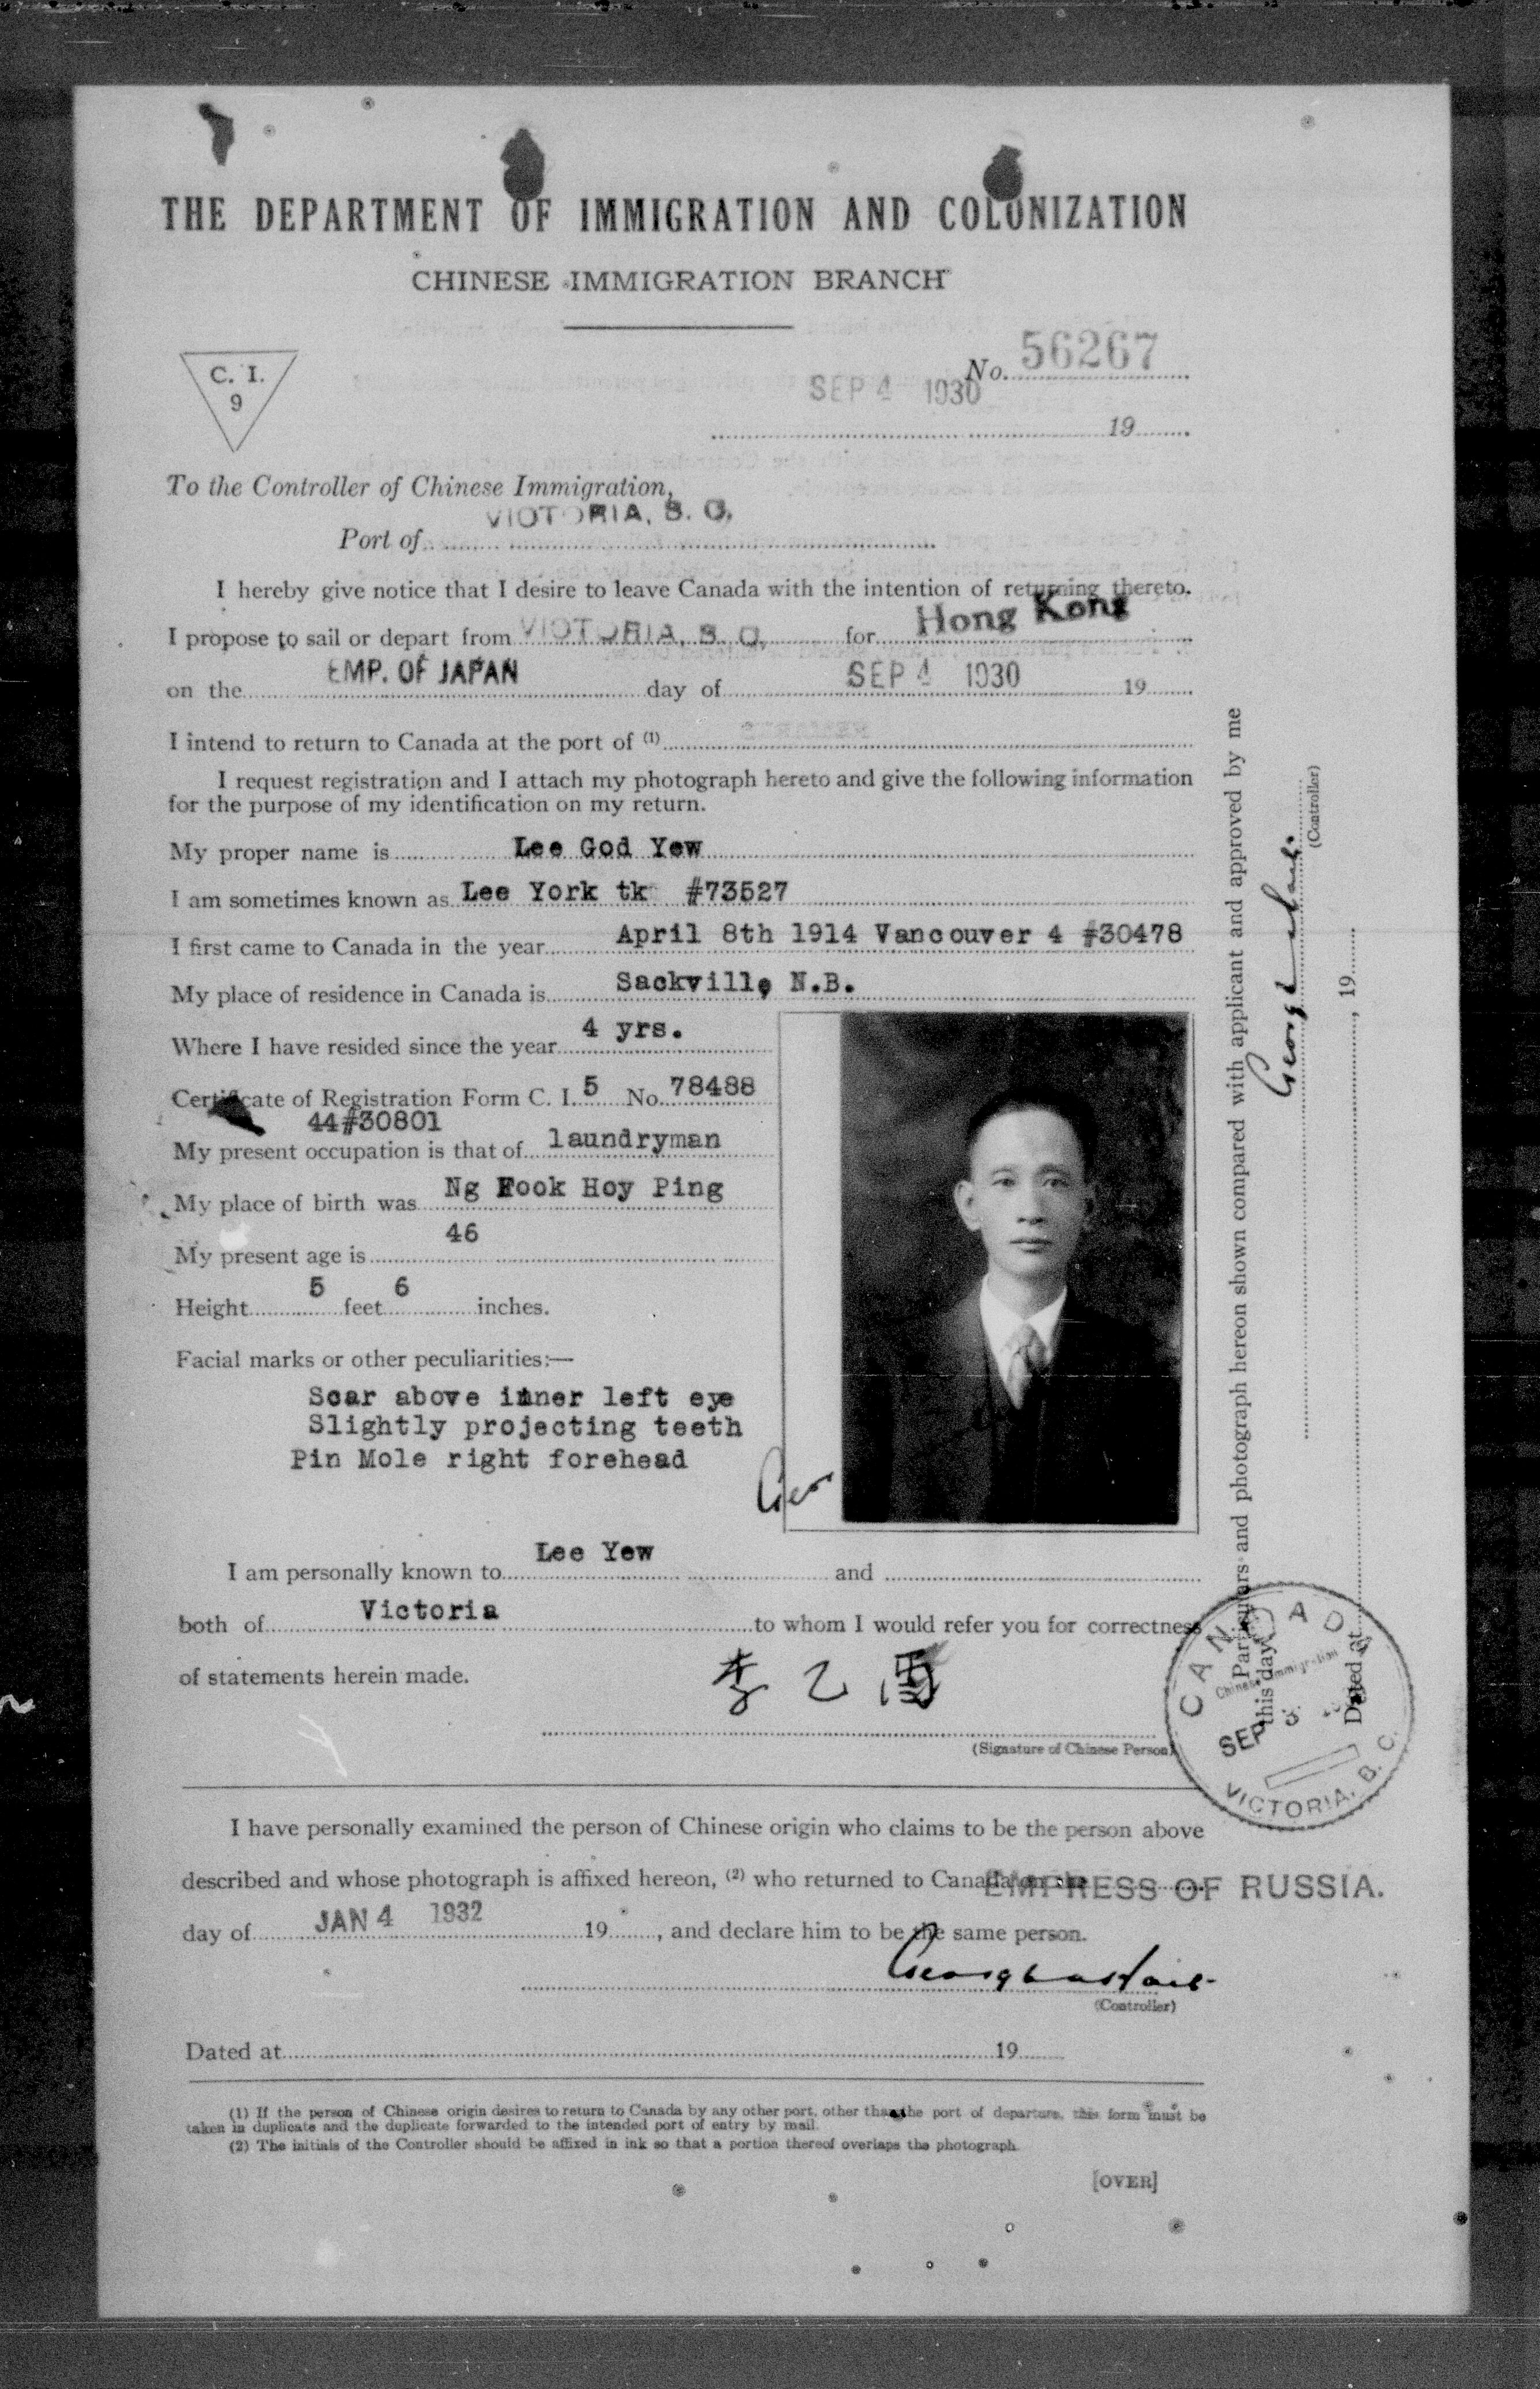 THE DEPARTMENT OF IMMIGRATION AND COLONIZATION
CHINESE IMMIGRATION BRANCH
C. I.
9
No. 56267
SEP 4 1930
19
To the Controller of Chinese Immigration,
Port of VICTORIA, B. C.
I hereby give notice that I desire to leave Canada with the intention of returning thereto.
I propose to sail or depart from VICTORIA, B. C. for Hong Kong
on the EMP. OF JAPAN day of SEP 4 1930 19
I intend to return to Canada at the port of (1)
I request registration and I attach my photograph hereto and give the following information
for the purpose of my identification on my return.
My proper name is Lee God Yew
I am sometimes known as Lee York tk #73527
I first came to Canada in the year April 8th 1914 Vancouver 4 #30478
My place of residence in Canada is Sackville N.B.
Where I have resided since the year 4 yrs.
Certificate of Registration Form C. I. 5 No. 78488
44#30801
My present occupation is that of laundryman
My place of birth was Ng Fook Hoy Ping
My present age is 46
Height 5 feet 6 inches.
Facial marks or other peculiarities:—
Scar above inner left eye
Slightly projecting teeth
Pin Mole right forehead
Geo
I am personally known to Lee Yew and
both of Victoria to whom I would refer you for correctness
of statements herein made.
李乙
(Signature of Chinese Person)
Particulars and photograph hereon shown compared with applicant and approved by me
this day
(Controller)
Dated at , 19
CANADA
Chinese Immigration
SEP 3
VICTORIA, B. C.
I have personally examined the person of Chinese origin who claims to be the person above
described and whose photograph is affixed hereon, (2) who returned to Canada on the EMPRESS OF RUSSIA.
day of JAN 4 1932 19 , and declare him to be the same person.
(Controller)
Dated at 19
(1) If the person of Chinese origin desires to return to Canada by any other port, other than the port of departure, this form must be
taken in duplicate and the duplicate forwarded to the intended port of entry by mail.
(2) The initials of the Controller should be affixed in ink so that a portion thereof overlaps the photograph.
[OVER]